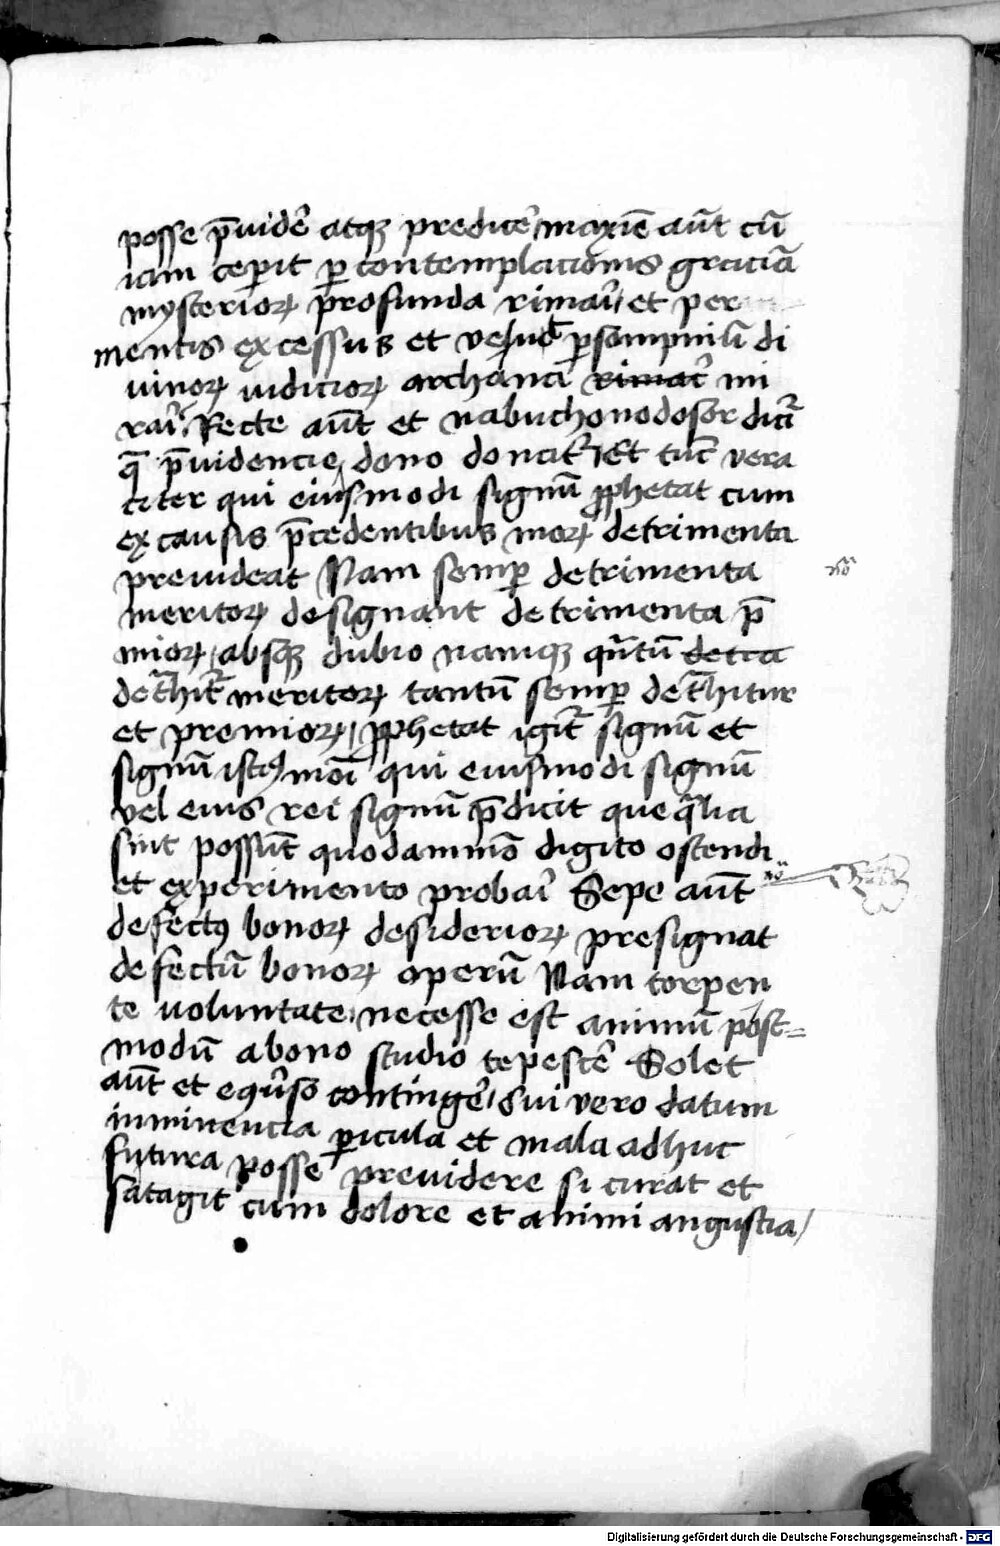 posse p̄uider̉ atqꝫ predicer̉ maxīe aūt cū
iam ceperit ꝑ contemplacionis graciā
mysterioꝝ profunda rimar̉ et per
mentis excessus et velud ꝑ sompniū di
uinoꝝ iudicioꝝ archana rimar̉ mi
rar̉ Recte aūt et nabuchonodosor dicit᷑
q̄ p̄uidencie dono donat᷑ Et tūc vera
citer qui eiusmodi signū ꝓphetat cum
ex causis p̄cedentibus moꝝ detrimenta
preuideat Nam semꝑ detrimenta
no
meritoꝝ designant detrimenta p̄
mioꝝ absqꝫ dubio namqꝫ qñtū detra
det᷑hit᷑ meritoꝝ tantū semꝑ det᷑hitur
et premioꝝ ꝓphetat igit᷑ signū et
signū istiꝰmōi qui eiusmodi signū
vel eius rei signū p̄dicit que q̄lia
sint possūt quodammō digito ostendi
et experimento probar̉ Sepe aūt
no
defectꝰ bonoꝝ desiderioꝝ presignat
defectū bonoꝝ operū Nam torpen
te voluntate necesse est animū post=
modū a bono studio tepescer̉ Solet
aūt et eq̉uso continger̉ Sui vero datum
inminencia ꝑicula et mala adhuc
futura posse preuidere si curat et
satagit cum dolore et animi angustia
Digitalisierung gefördert durch die Deutsche Forschungsgemeinschaft - DFG